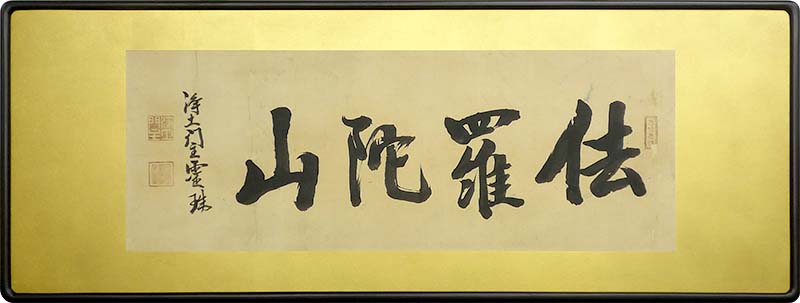 佉羅陀山
浄土門主霊瑞